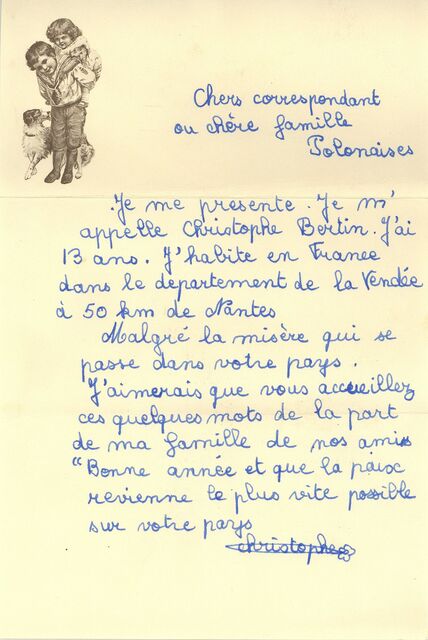 Chers correspondant
ou chère famille
Polonaises
Je me presente. Je m'
appelle Christophe Bertin. J'ai
13 ans. J'habite en France
dans le departement de la Vendée
à 50 km de Nantes
Malgré la misère qui se
passe dans votre pays.
J'aimerais que vous accueillez
ces quelques mots de la part
de ma famille de nos amis
"Bonne année et que la paix
revienne le plus vite possible
sur votre pays
christophe